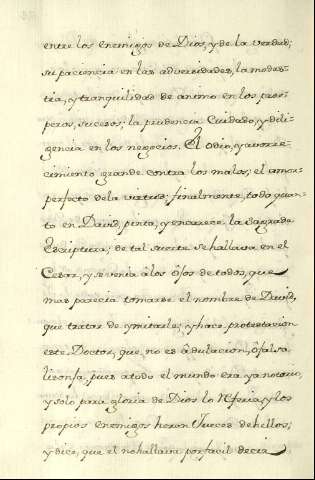 entre los Enemigos de Dios, y de la verdad;
su paciencia en las adversidades, la modes-
tia, y tranquilidad de animo en los pros-
peros, sucesos; la prudencia Cuidado, y dili-
gencia en los negocios. El odio, y avorre-
cimiento grande contra los malos; el amor
perfecto dela virtud; finalmente, todo quan-
to en David, pinta, y encarece la Sagrada
Escriptura; de tal suerte se hallava en el
Cesar, y se venia â los ôjos de todos, que
mas parecia tomarse el nombre de David,
que tratar de ymitarle; y hace protestacion
este Doctor, que no es âdulacion, ôfalsa
lisonja, pues atodo el mundo era ya notorio,
y solo para gloria de Dios lo Referia, y los
propios Enemigos heran Jueces dehellos;
y dice, que el nohallava por facil decir